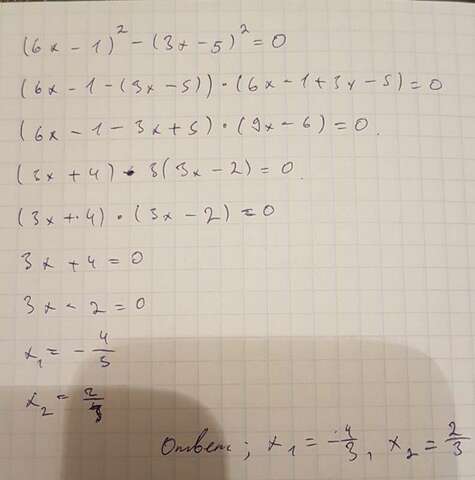 (6x - 1)² - (3x - 5)² = 0
(6x - 1 - (3x - 5)) · (6x - 1 + 3x - 5) = 0
(6x - 1 - 3x + 5) · (9x - 6) = 0.
(3x + 4) · 3(3x - 2) = 0.
(3x + 4) · (3x - 2) = 0
3x + 4 = 0
3x - 2 = 0
x₁ = - 4/3
x₂ = 2/3
Ответ; x₁ = -4/3, x₂ = 2/3